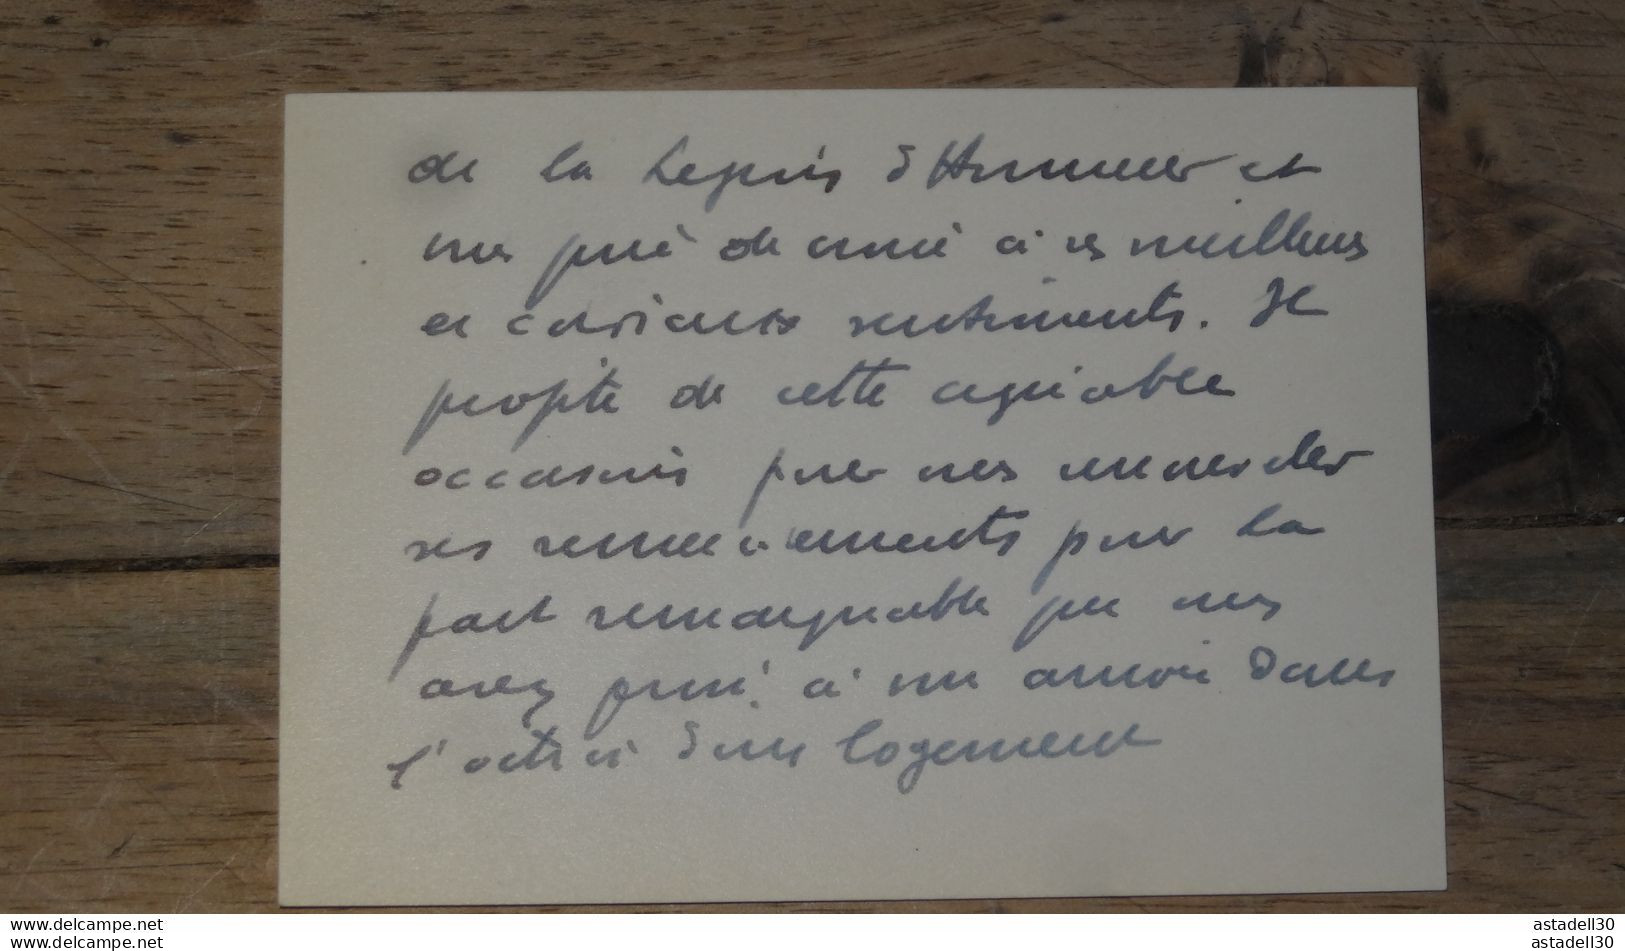 de la Légion d'Honneur et
vous prie de croire à ses meilleurs
et cordiaux sentiments. Il
profite de cette agréable
occasion pour vous renouveler
ses remerciements pour la
part remarquable que vous
avez prise à son arrivée dans
l'octroi d'un logement
www.delcampe.net
www.delcampe.net
astadell30
astadell30